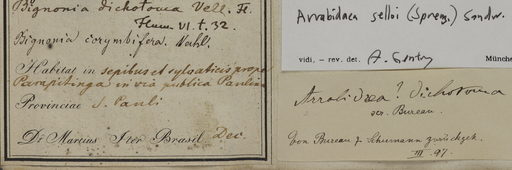 Bignonia dichotoma Vell. Fl.
Flum VI. t. 32.
Bignonia corymbifera. Vahl.
Habitat in sepibus et sylvaticis prope
Parapitinga in via publica Paulina
Provinciae S. Pauli
Dr Martius Iter Brasil. Dec.
Arrabidaea selloi (Spreng.) Sandw.
vidi. – rev. det. A. Gentry Münche
Arrabidaea? dichotoma
Bureau.
von Bureau & Schumann zurückgek.
III. 97.